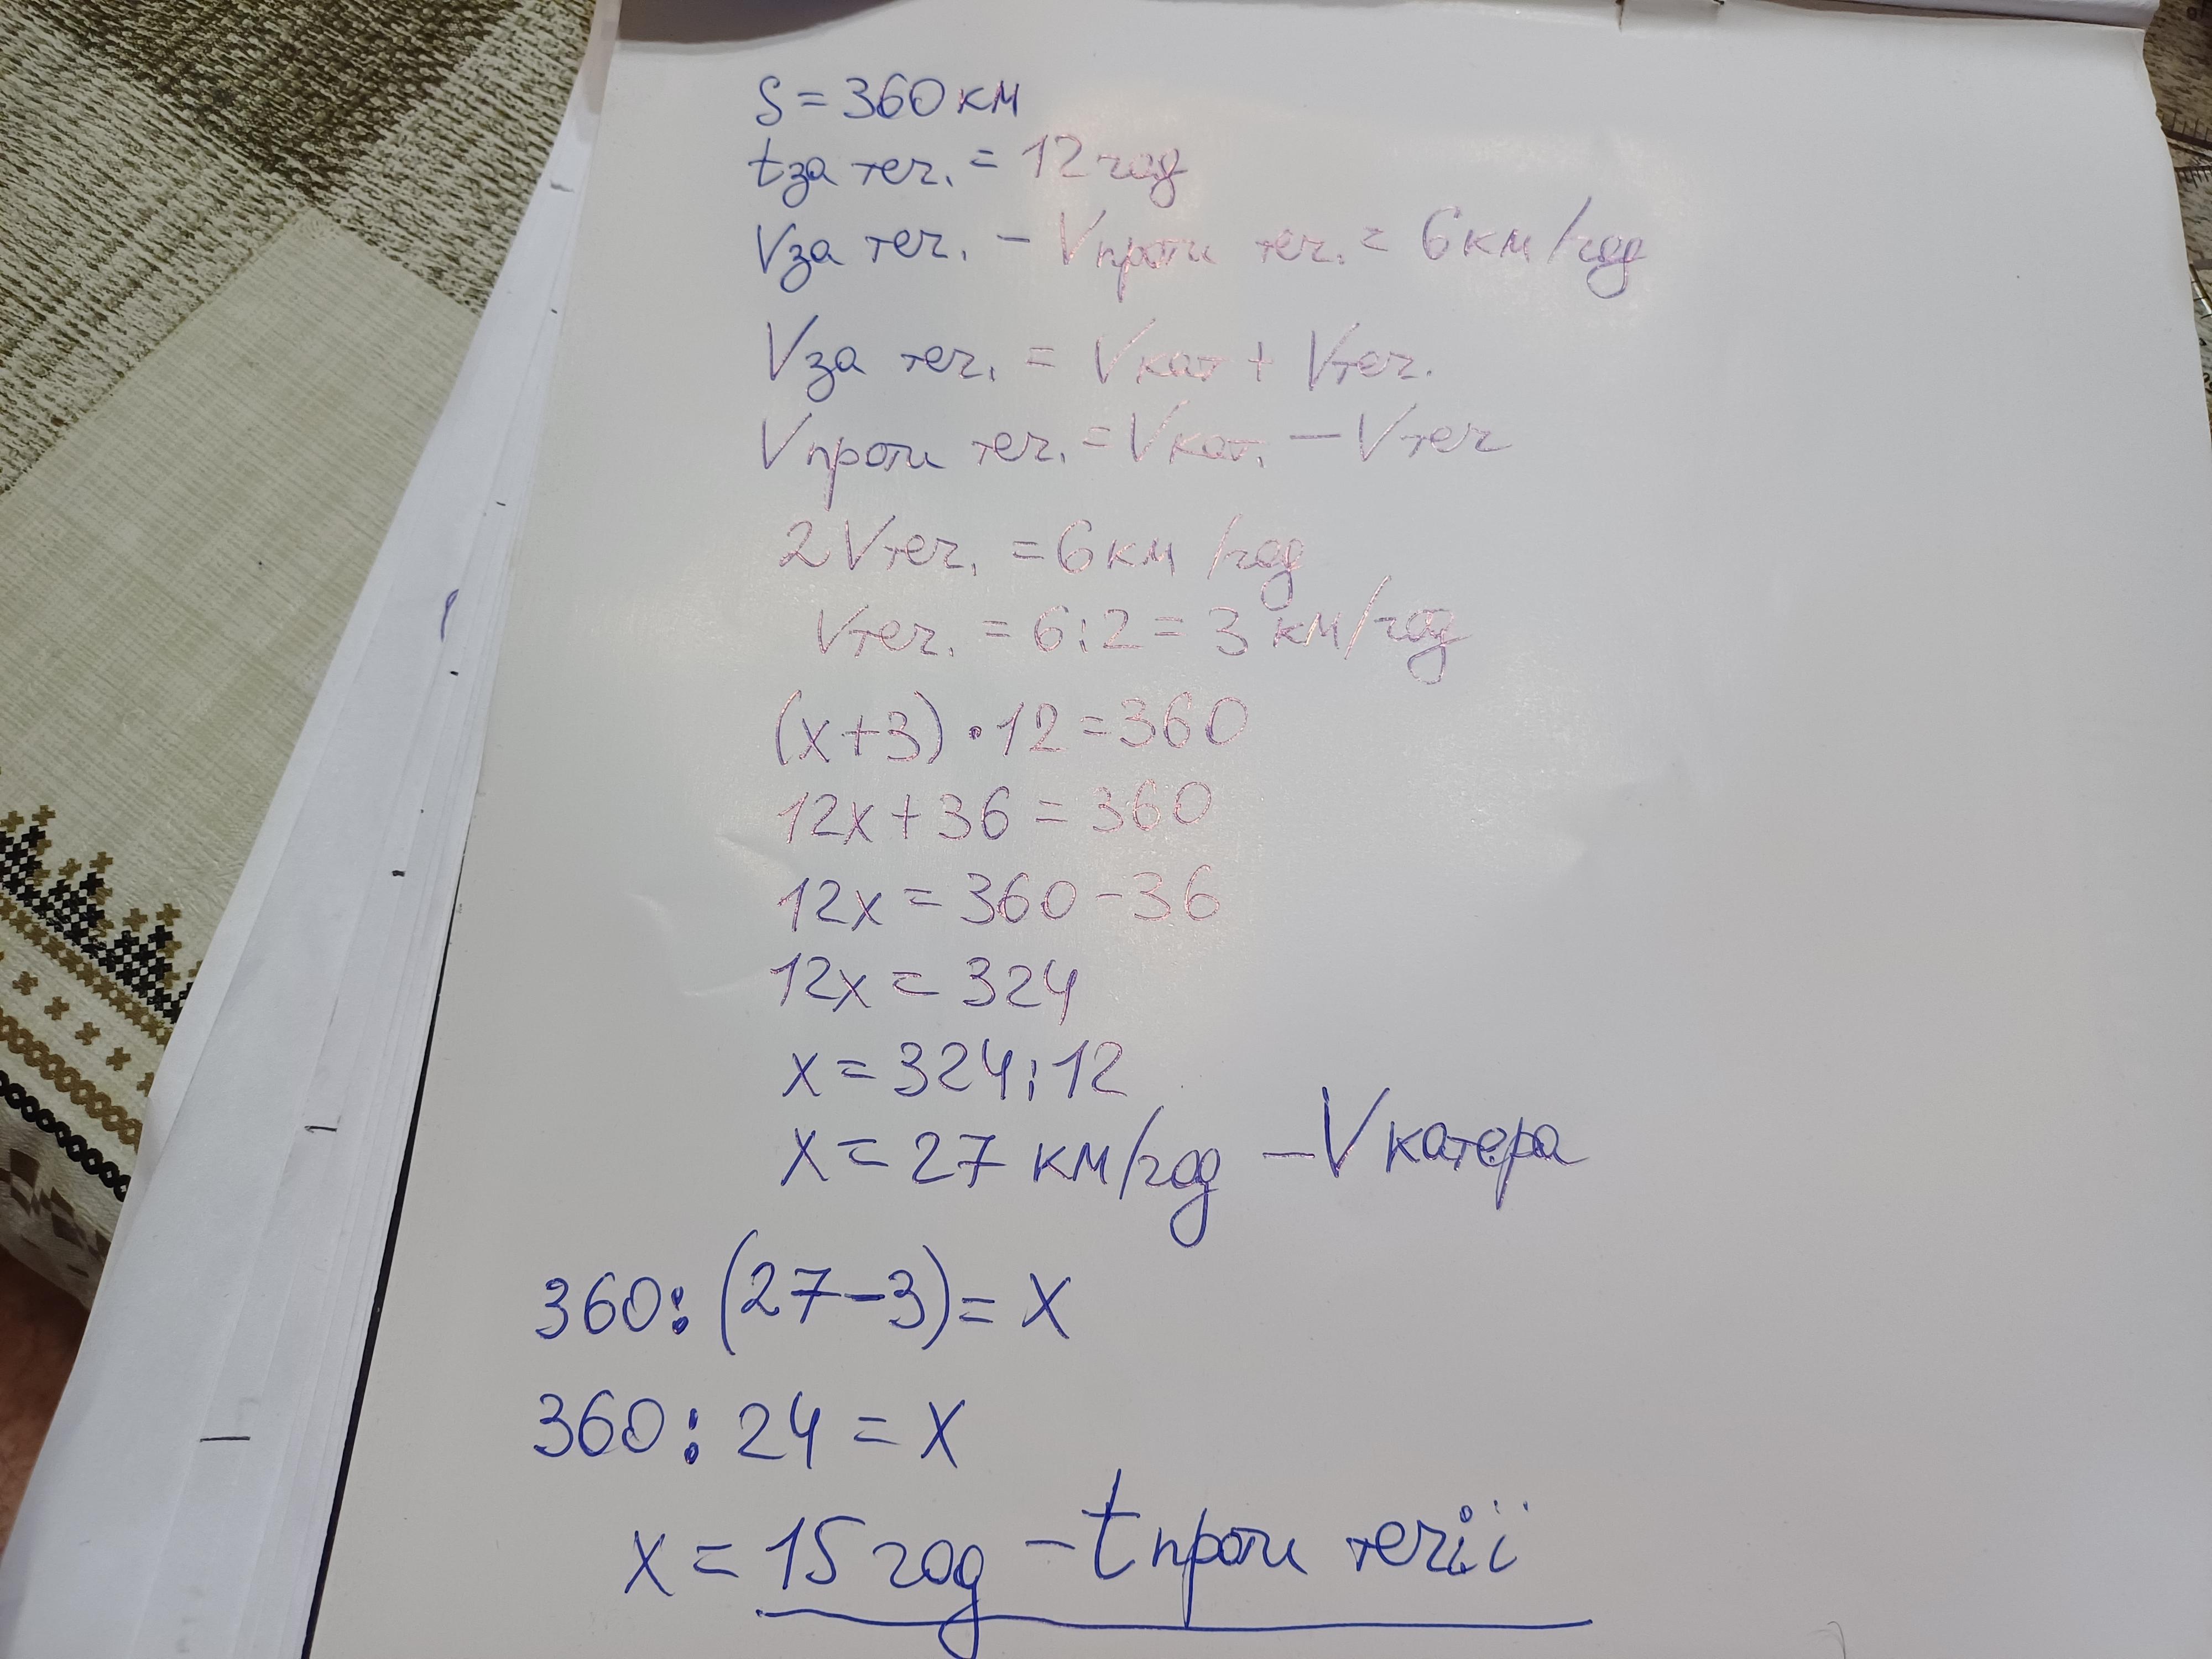 S = 360 км
t за теч. = 12 год
V за теч. - V проти теч. = 6 км/год
V за теч. = V кат + V теч.
V проти теч. = V кат. - V теч
2 V теч. = 6 км/год
V теч. = 6:2 = 3 км/год
(x+3) · 12 = 360
12x + 36 = 360
12x = 360 - 36
12x = 324
x = 324:12
x = 27 км/год - V катера
360 : (27-3) = x
360 : 24 = x
x = 15 год - t проти течії